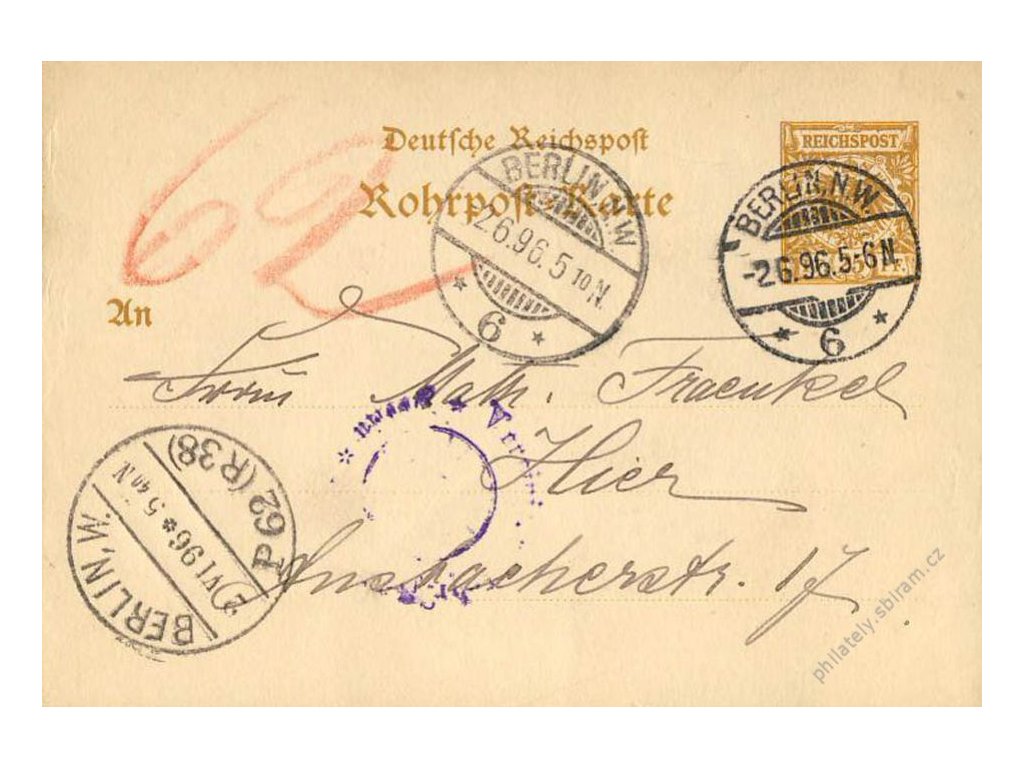 62
Deutsche Reichspost
Rohrpost-Karte
REICHSPOST
BERLIN, N.W
26.96.5 10 N.
* 6 *
BERLIN, N.W.
-26.96.5-6N.
* 6 *
An
Frau Math. Fraenkel
Hier
Ansbacherstr. 17
BERLIN, W.
2 VI 96 * 5 40 N
P 62 (R 38)
philately.sbiram.cz